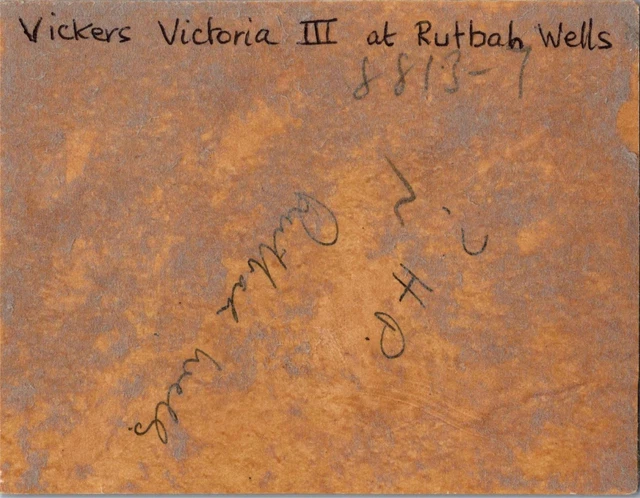 Vickers Victoria III at Rutbah Wells
8813-7
Rutbah Wells.